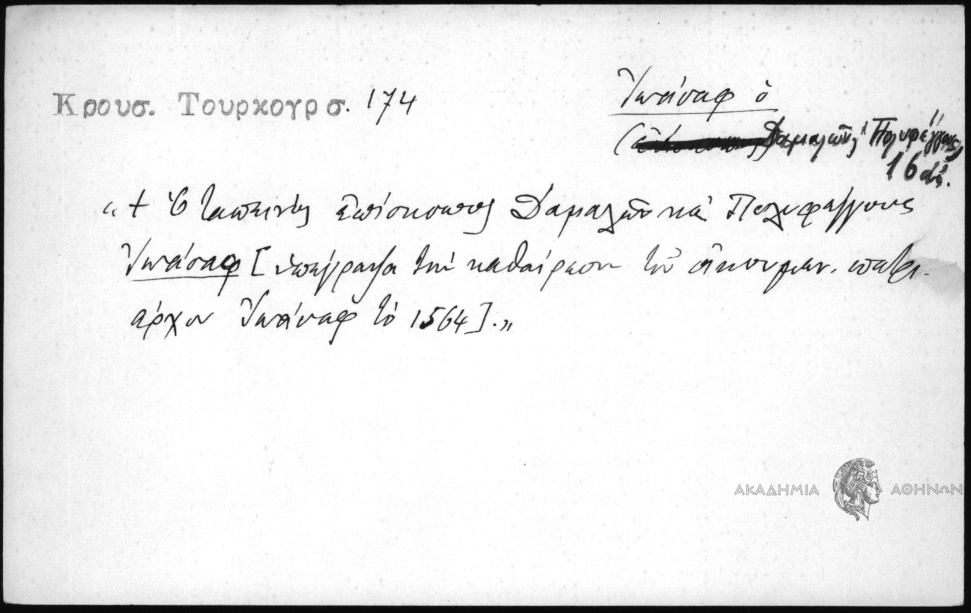 Κρουσ. Τουρκογρ σ. 174
Ἰωάσαφ ὁ
Δαμαλῶν Πολυφέγγους
16 αἰ.
„ + Ὁ ταπεινὸς Ἐπίσκοπος Δαμαλῶν καὶ Πολυφάγγους
Ἰωάσαφ [ ὑπέγραψε τὴν καθαίρεσιν τοῦ οἰκουμεν. πατρι-
άρχου Ἰωάσαφ τὸ 1564 ]. „
ΑΚΑΔΗΜΙΑ ΑΘΗΝΩΝ